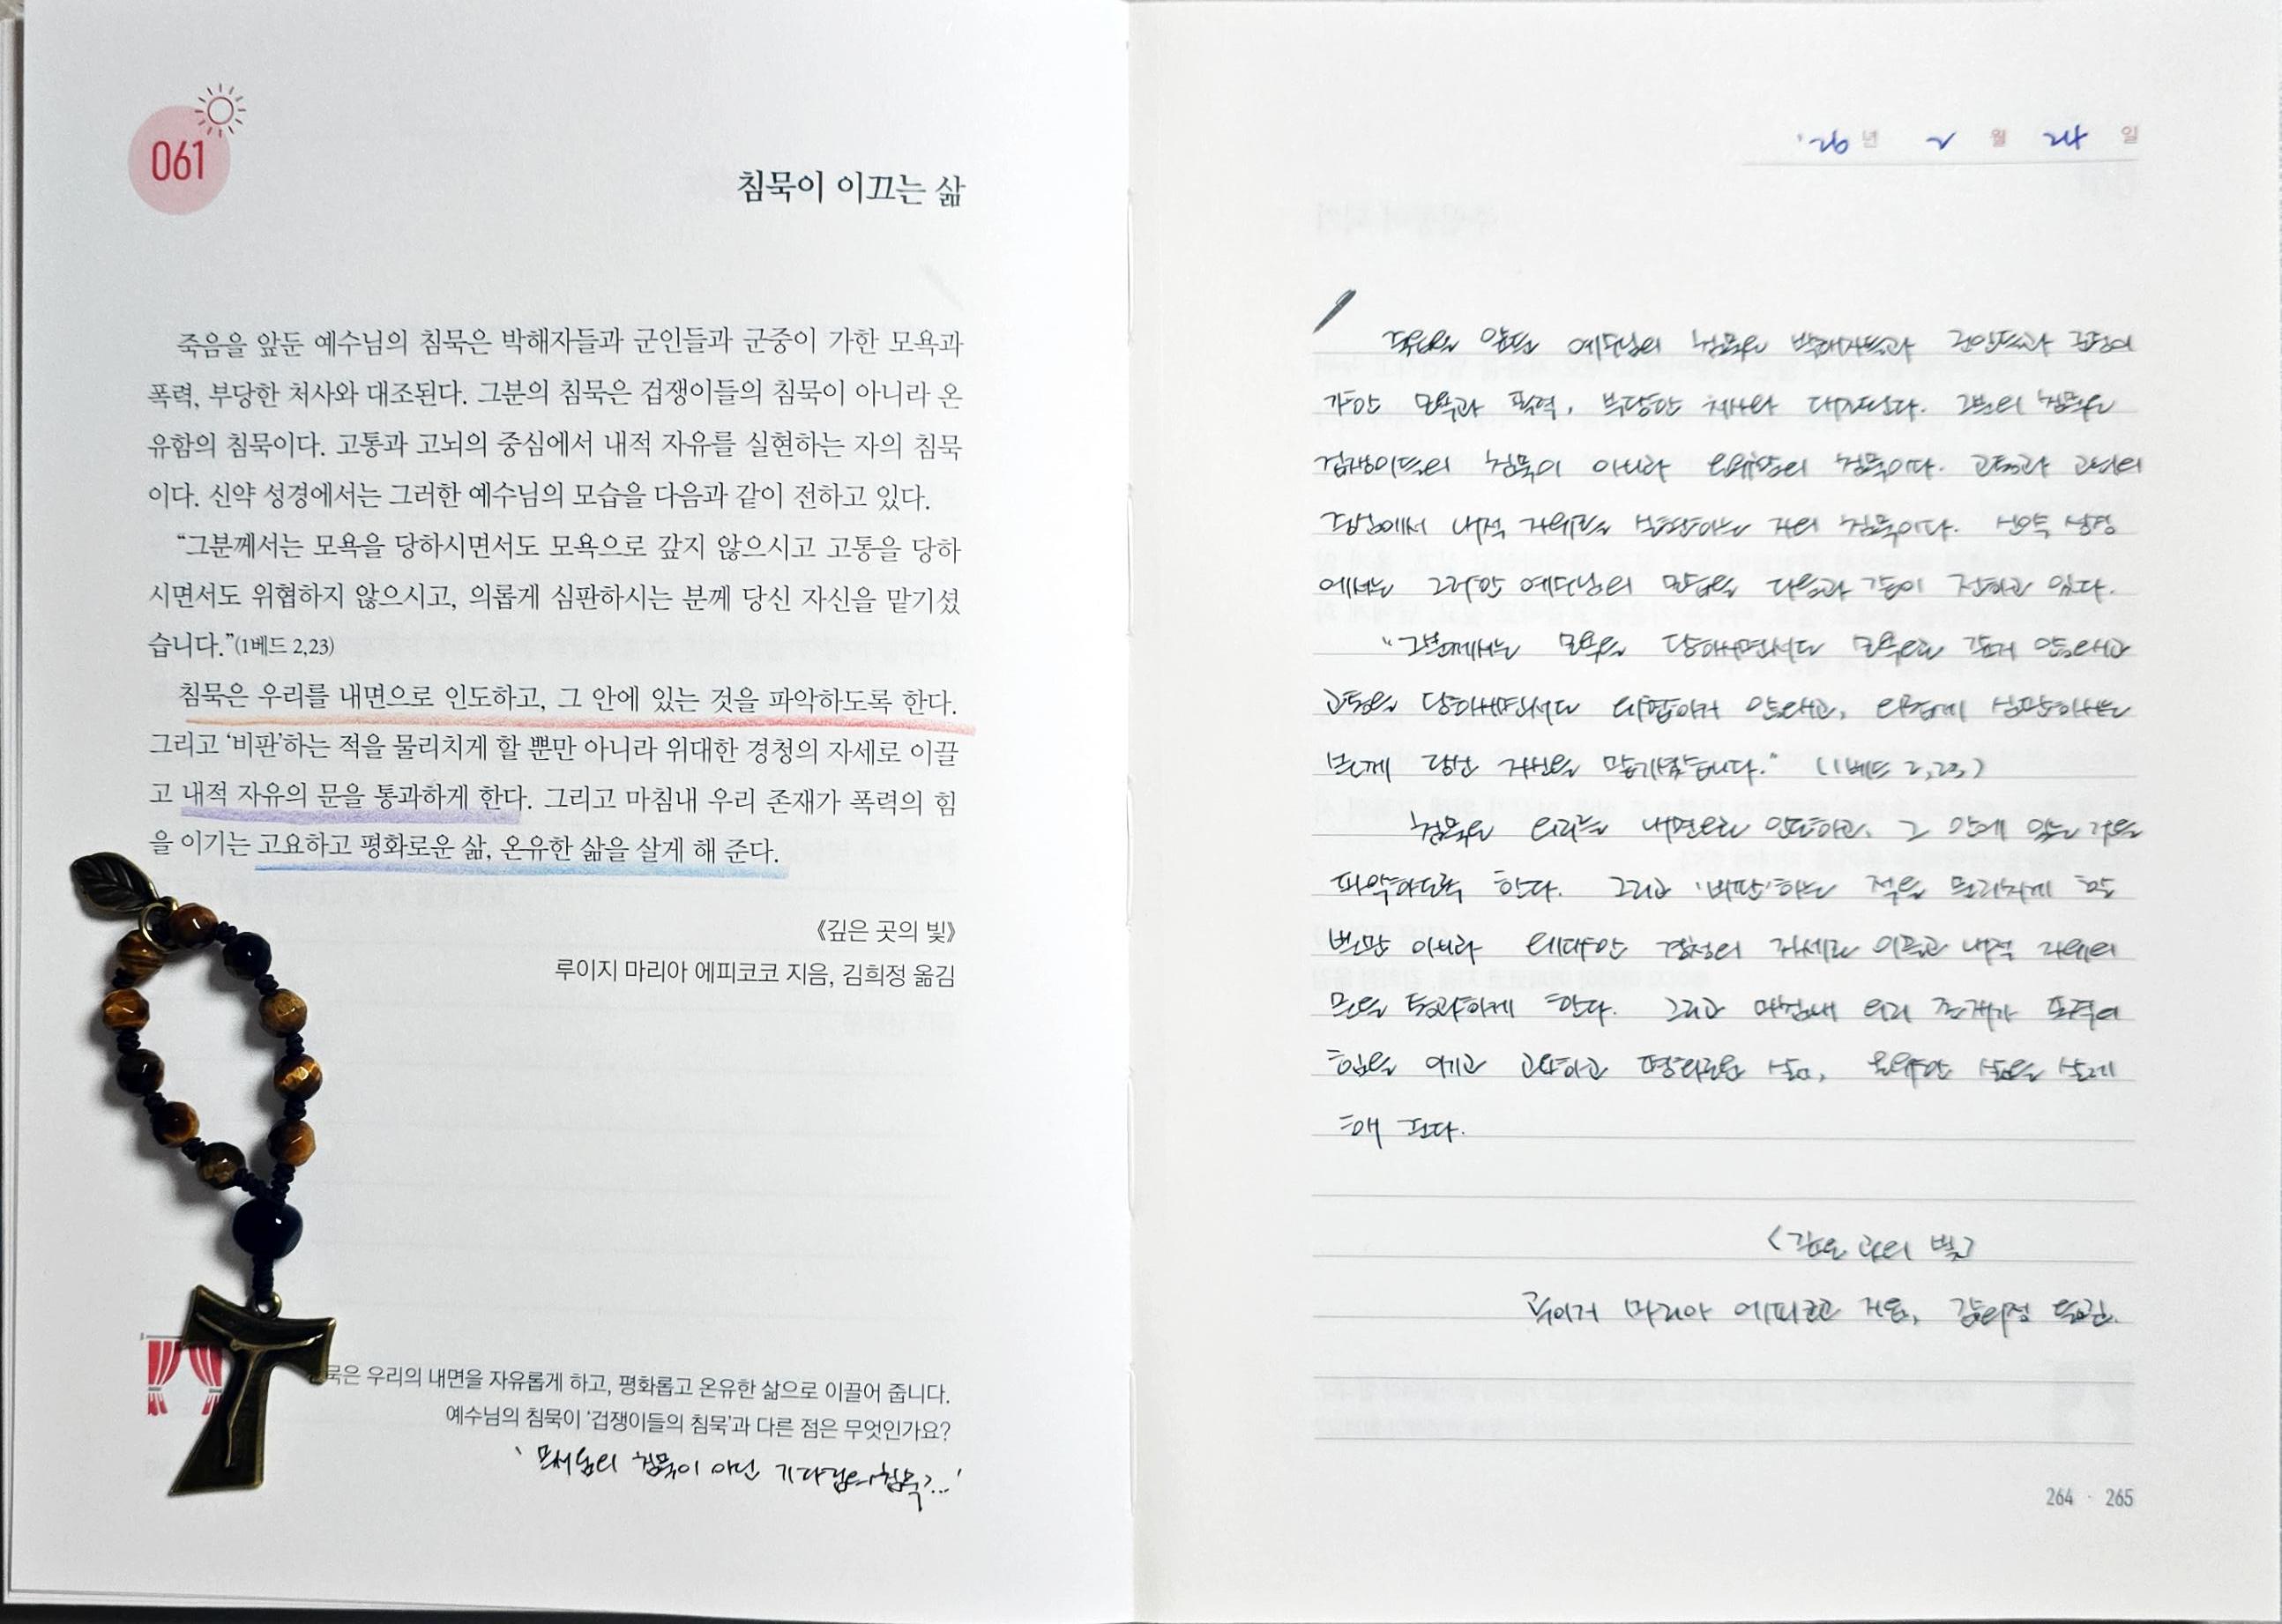 061
침묵이 이끄는 삶
죽음을 앞둔 예수님의 침묵은 박해자들과 군인들과 군중이 가한 모욕과
폭력, 부당한 처사와 대조된다. 그분의 침묵은 겁쟁이들의 침묵이 아니라 온
유함의 침묵이다. 고통과 고뇌의 중심에서 내적 자유를 실현하는 자의 침묵
이다. 신약 성경에서는 그러한 예수님의 모습을 다음과 같이 전하고 있다.
“그분께서는 모욕을 당하시면서도 모욕으로 갚지 않으시고 고통을 당하
시면서도 위협하지 않으시고, 의롭게 심판하시는 분께 당신 자신을 맡기셨
습니다.”(1베드 2,23)
침묵은 우리를 내면으로 인도하고, 그 안에 있는 것을 파악하도록 한다.
그리고 ‘비판’하는 적을 물리치게 할 뿐만 아니라 위대한 경청의 자세로 이끌
고 내적 자유의 문을 통과하게 한다. 그리고 마침내 우리 존재가 폭력의 힘
을 이기는 고요하고 평화로운 삶, 온유한 삶을 살게 해 준다.
《깊은 곳의 빛》
루이지 마리아 에피코코 지음, 김희정 옮김
묵은 우리의 내면을 자유롭게 하고, 평화롭고 온유한 삶으로 이끌어 줍니다.
예수님의 침묵이 ‘겁쟁이들의 침묵’과 다른 점은 무엇인가요?
침묵이 아닌 기다림의 침묵?...'
'26년 2월 24일
죽음을 앞둔 예수님의 침묵은 박해자들과 군인들과 군중이
가한 모욕과 폭력, 부당한 처사와 대조된다. 그분의 침묵은
겁쟁이들의 침묵이 아니라 온유함의 침묵이다. 고통과 고뇌의
중심에서 내적 자유를 실현하는 자의 침묵이다. 신약 성경
에서는 그러한 예수님의 모습을 다음과 같이 전하고 있다.
“그분께서는 모욕을 당하시면서도 모욕으로 갚지 않으시고
고통을 당하시면서도 위협하지 않으시고, 의롭게 심판하시는
분께 당신 자신을 맡기셨습니다.” (1베드 2,23)
침묵은 우리를 내면으로 인도하고, 그 안에 있는 것을
파악하도록 한다. 그리고 '비판'하는 적을 물리치게 할
뿐만 아니라 위대한 경청의 자세로 이끌고 내적 자유의
문을 통과하게 한다. 그리고 마침내 우리 존재가 폭력의
힘을 이기고 고요하고 평화로운 삶, 온유한 삶을 살게
해 준다.
<깊은 곳의 빛>
루이지 마리아 에피코코 지음, 김희정 옮김.
264 · 265